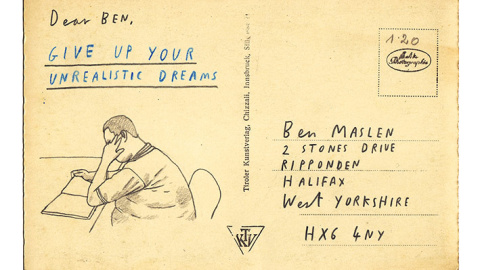 Dear BEN,
GIVE UP YOUR
UNREALISTIC DREAMS
Tiroler Kunstverlag, Chizzali, Innsbruck,
1.20
Ben MASLEN
2 STONES DRIVE
RIPPONDEN
HALIFAX
West YORKSHIRE
HX6 4NY